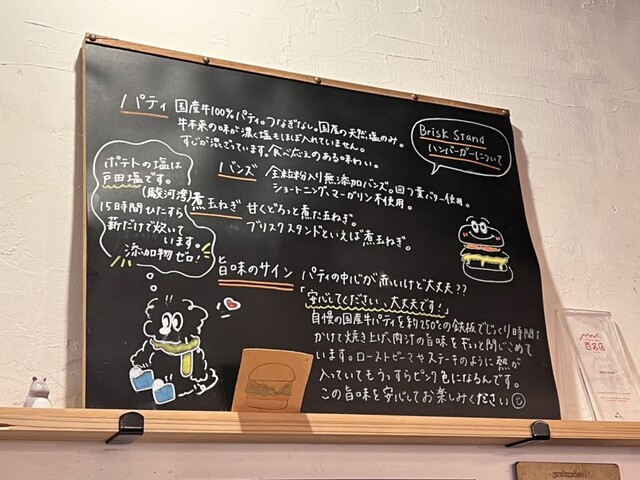 Brisk Stand
ハンバーガーについて
パティ 国産牛100%パティ。つなぎなし。国産の天然塩のみ。
牛本来の味が濃く塩もほぼ入れていません。
すじが混ざっています。食べごたえのある味わい。
バンズ 全粒粉入り無添加バンズ。四つ葉バター使用。
ショートニング、マーガリン不使用。
煮玉ねぎ 甘くどろっと煮た玉ねぎ。
ブリスクスタンドといえば煮玉ねぎ。
ポテトの塩は
戸田塩です。
(駿河湾)
15時間ひたすら
薪だけで炊いて
います。
添加物ゼロ!
旨味のサイン パティの中心が赤いけど大丈夫??
「安心してください、大丈夫です!」
自慢の国産牛パティを約250℃の鉄板でじっくり時間を
かけて焼き上げ、肉汁の旨味をギュっと閉じこめて
います。ローストビーフやステーキのように熱が
入っていてもうっすらピンク色になるんです。
この旨味を安心してお楽しみください
百名店